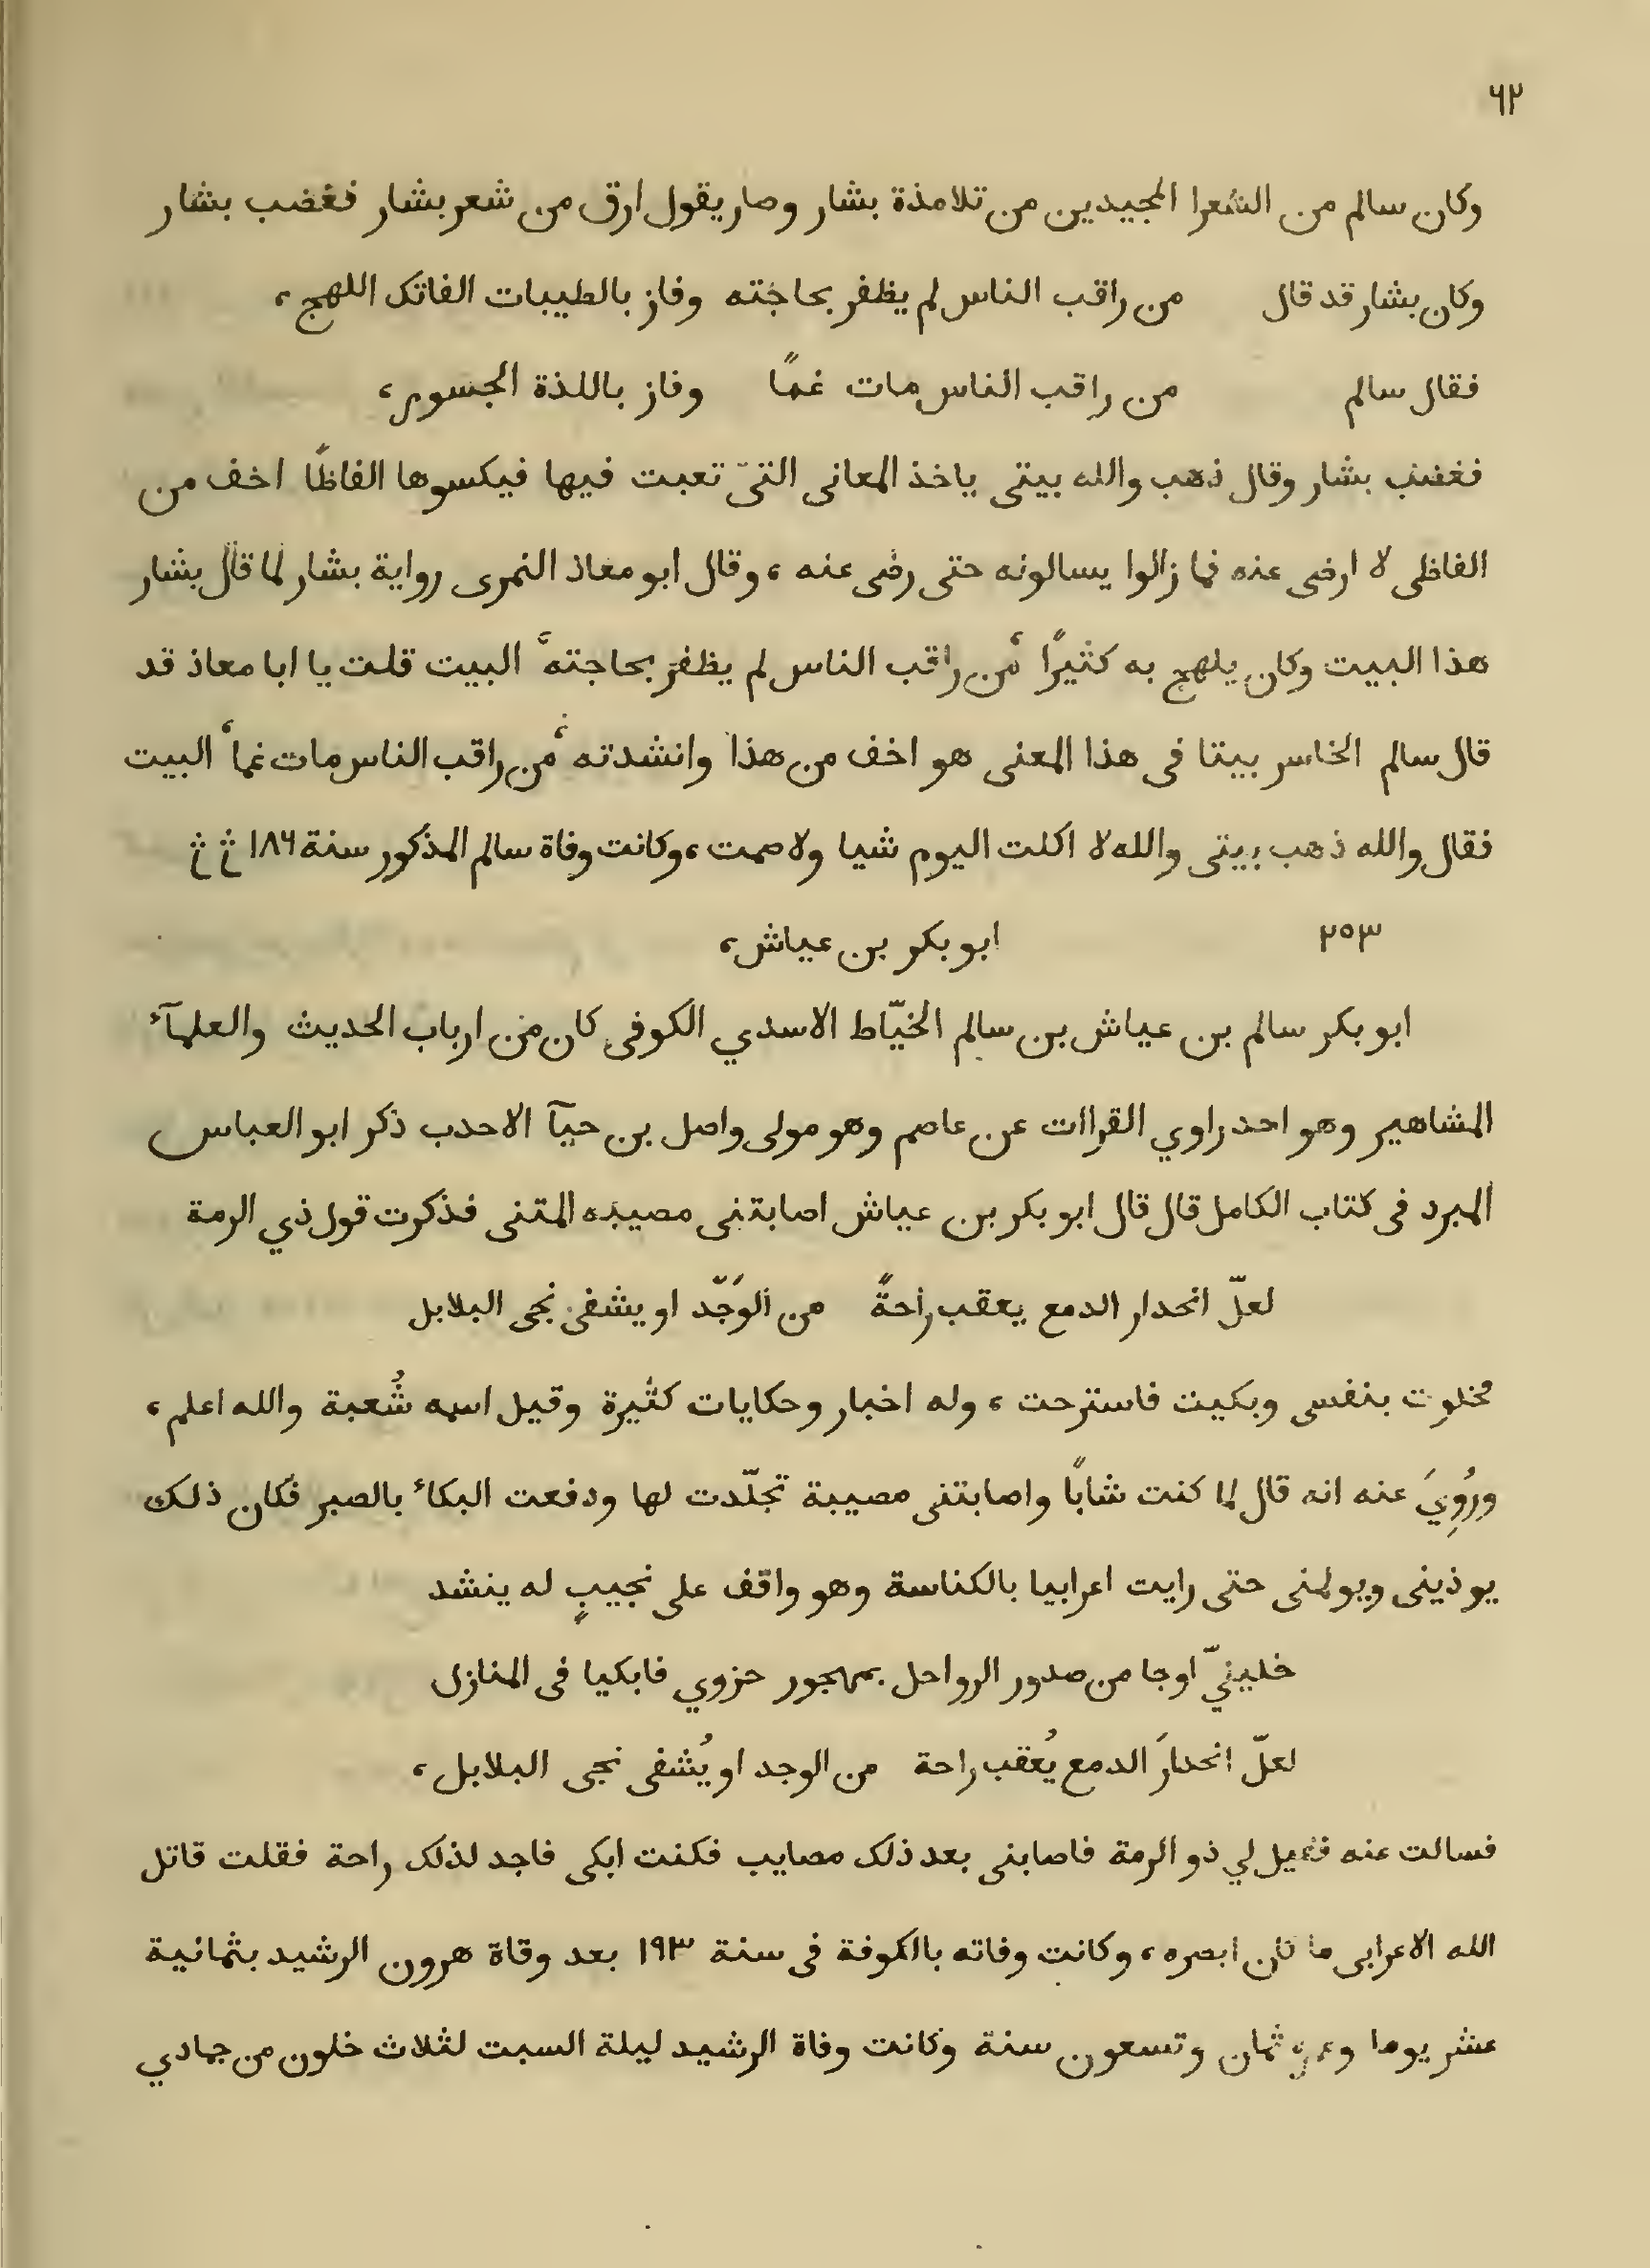 ٦٢
وكان سالم من الشعرا المجيدين من تلامذة بشار وصار يقول ارق من شعر بشار فغضب بشار
وكان بشار قد قال من راقب الناس لم يظفر بحاجته وفاز بالطيبات الفاتك اللهج،
فقال سالم من راقب الناس مات غمًا وفاز باللذة الجسور،
فغضب بشار وقال ذهب والله بيتى ياخذ المعانى التى تعبت فيها فيكسوها الفاظًا اخف من
الفاظى لا ارضى عنه فما زالوا يسالونه حتى رضى عنه، وقال ابو معاذ النمرى رواية بشار لما قال بشار
هذا البيت وكان يلهج به كثيرًا من راقب الناس لم يظفر بحاجته البيت قلت يا ابا معاذ قد
قال سالم الخاسر بيتا فى هذا المعنى هو اخف من هذا وانشدته من راقب الناس مات غما البيت
فقال والله ذهب بيتى والله لا اكلت اليوم شيا ولا صمت، وكانت وفاة سالم المذكور سنة ١٨٦
٢٥٣ ابو بكر بن عياش،
ابو بكر سالم بن عياش بن سالم الخيّاط الاسدي الكوفى كان من ارباب الحديث والعلمآء
المشاهير وهو احد راوي القراات عن عاصم وهو مولى واصل بن حيآ الاحدب ذكر ابو العباس
المبرد فى كتاب الكامل قال قال ابو بكر بن عياش اصابتنى مصيبه المتنى فذكرت قول ذي الرمة
لعلّ انحدار الدمع يعقب راحةً من الوَجّد او يشفى نجى البلابل
فخلوت بنفسى وبكيت فاسترحت، وله اخبار وحكايات كثيرة وقيل اسمه شُعبة والله اعلم،
ورُوِيَ عنه انه قال لما كنت شابًا واصابتنى مصيبة تجلّدت لها ودفعت البكاء بالصبر فكان ذلك
يوذينى ويولمنى حتى رايت اعرابيا بالكناسة وهو واقف على نجيبٍ له ينشد
خليليّ اوجا من صدور الرواحل بمهجور حزوي فابكيا فى المنازل
لعلّ انحدارَ الدمع يُعقب راحة من الوجد او يُشفى نجى البلابل،
فسالت عنه فقيل لي ذو الرمة فاصابنى بعد ذلك مصايب فكنت ابكى فاجد لذلك راحة فقلت قاتل
الله الاعرابى ما كان ابصره، وكانت وفاته بالكوفة فى سنة ١٩٣ بعد وقاة هرون الرشيد بثمانية
عشر يوما وعمره ثمان وتسعون سنة وكانت وفاة الرشيد ليلة السبت لثلاث خلون من جمادي